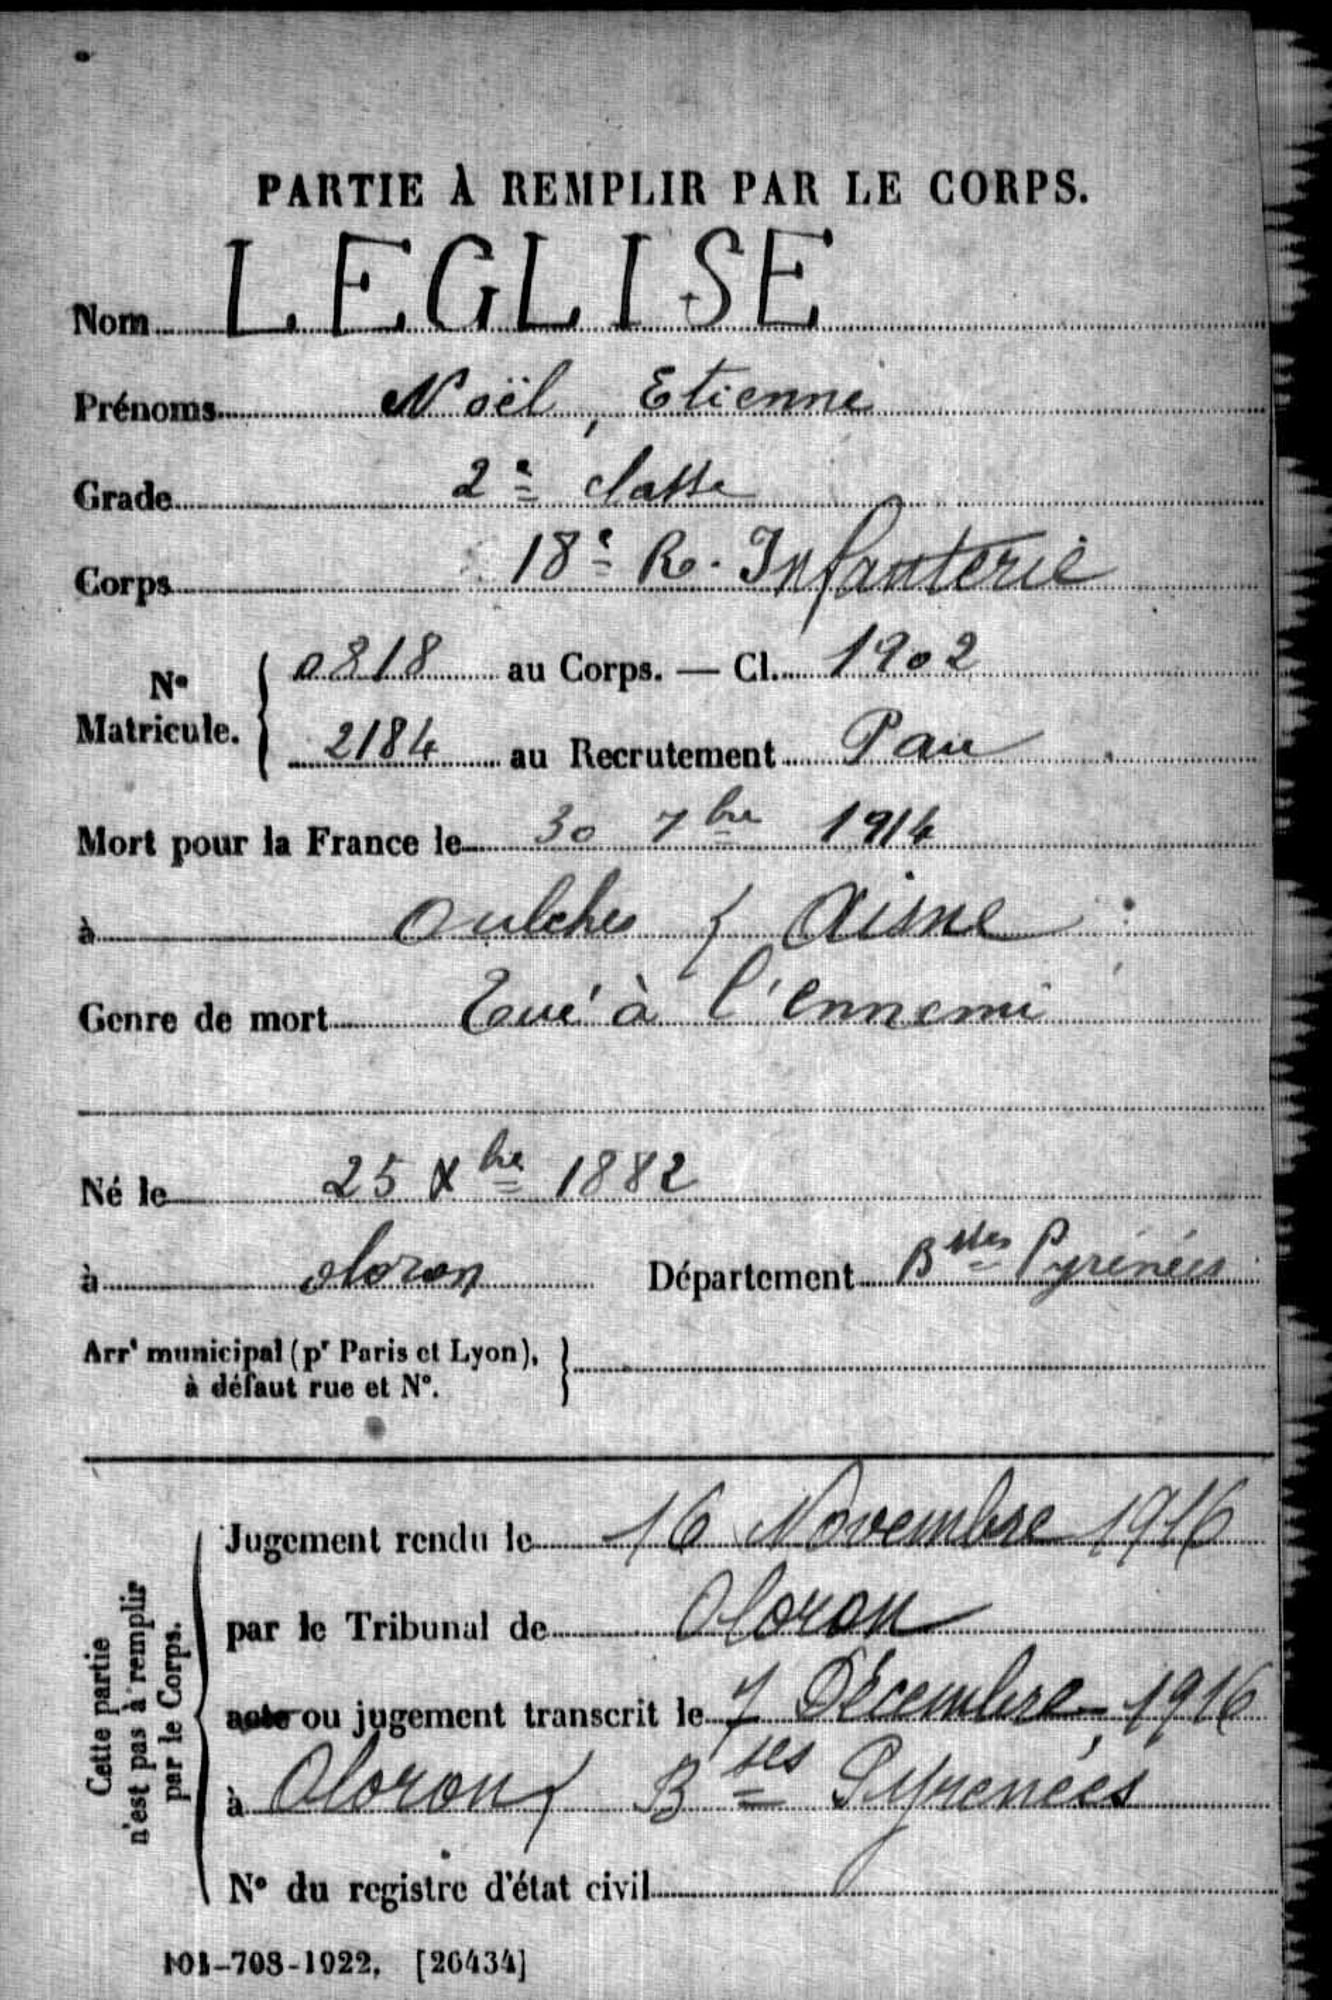 PARTIE À REMPLIR PAR LE CORPS.
Nom LEGLISE
Prénoms Noël, Etienne
Grade 2e classe
Corps 18e R. Infanterie
No Matricule. { 0818 au Corps. — Cl. 1902
2184 au Recrutement Pau
Mort pour la France le 30 7bre 1914
à Oulches ( Aisne
Genre de mort Tué à l'ennemi
Né le 25 Xbre 1882
à Oloron Département Bsses Pyrénées
Arrt municipal (pr Paris et Lyon), }
à défaut rue et No.
Cette partie
n'est pas à remplir
par le Corps.
Jugement rendu le 16 Novembre 1916
par le Tribunal de Oloron
acte ou jugement transcrit le 7 Décembre 1916
à Oloron ( Bses Pyrenées
No du registre d'état civil
101-708-1922. [26434]